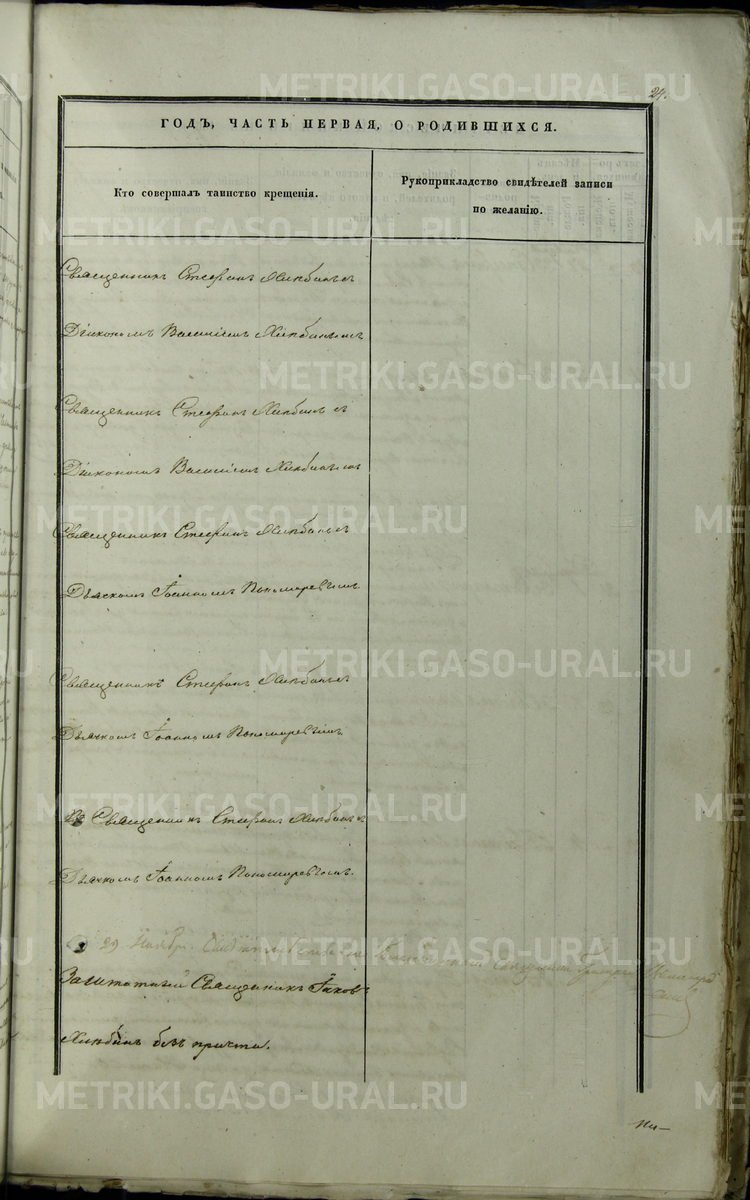 24.
ГОДЪ, ЧАСТЬ ПЕРВАЯ, О РОДИВШИХСЯ.
Кто совершалъ таинство крещенія.
Рукоприкладство свидѣтелей записи
по желанію.
Священникъ Стефанъ Хлѣбинъ съ
Діакономъ Василіемъ Хлѣбинымъ
Священникъ Стефанъ Хлѣбинъ съ
Діакономъ Василіемъ Хлѣбинымъ
Священникъ Стефанъ Хлѣбинъ съ
Дьячкомъ Іоанномъ Пономаревымъ.
Священникъ Стефанъ Хлѣбинъ съ
Дьячкомъ Іоанномъ Пономаревымъ.
Священникъ Стефанъ Хлѣбинъ съ
Дьячкомъ Іоанномъ Пономаревымъ.
29 Ноябр.
Заштатный Священникъ Іаковъ
Хлѣбинъ безъ причта.
METRIKI.GASO-URAL.RU